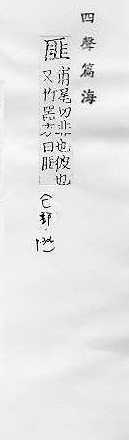 四聲篇海
匪
甫尾切非也彼也
又竹器方曰匪
匚部